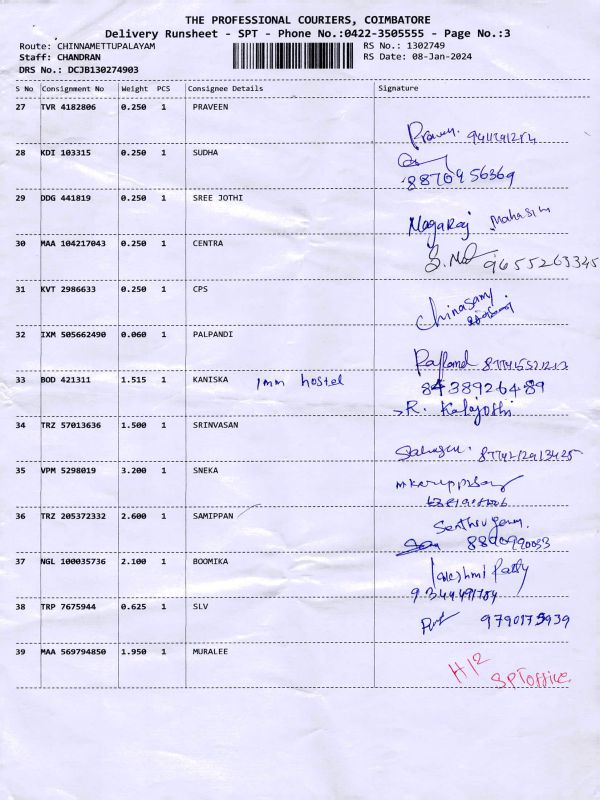 THE PROFESSIONAL COURIERS, COIMBATORE
Delivery Runsheet - SPT - Phone No.:0422-3505555 - Page No.:3
Route: CHINNAMETTUPALAYAM RS No.: 1302749
Staff: CHANDRAN RS Date: 08-Jan-2024
DRS No.: DCJB130274903
S No Consignment No Weight PCS Consignee Details Signature
27 TVR 4182806 0.250 1 PRAVEEN
Praveen.
28 KDI 103315 0.250 1 SUDHA
8870956369
29 DDG 441819 0.250 1 SREE JOTHI
Nagaraj
30 MAA 104217043 0.250 1 CENTRA
9655263345
31 KVT 2986633 0.250 1 CPS
Chinasamy
32 IXM 505662490 0.060 1 PALPANDI
33 BOD 421311 1.515 1 KANISKA 1mm hostel
R. Kalajothi
34 TRZ 57013636 1.500 1 SRINVASAN
35 VPM 5298019 3.200 1 SNEKA
36 TRZ 205372332 2.600 1 SAMIPPAN
37 NGL 100035736 2.100 1 BOOMIKA
38 TRP 7675944 0.625 1 SLV
9790175939
39 MAA 569794850 1.950 1 MURALEE
H12
SPT office